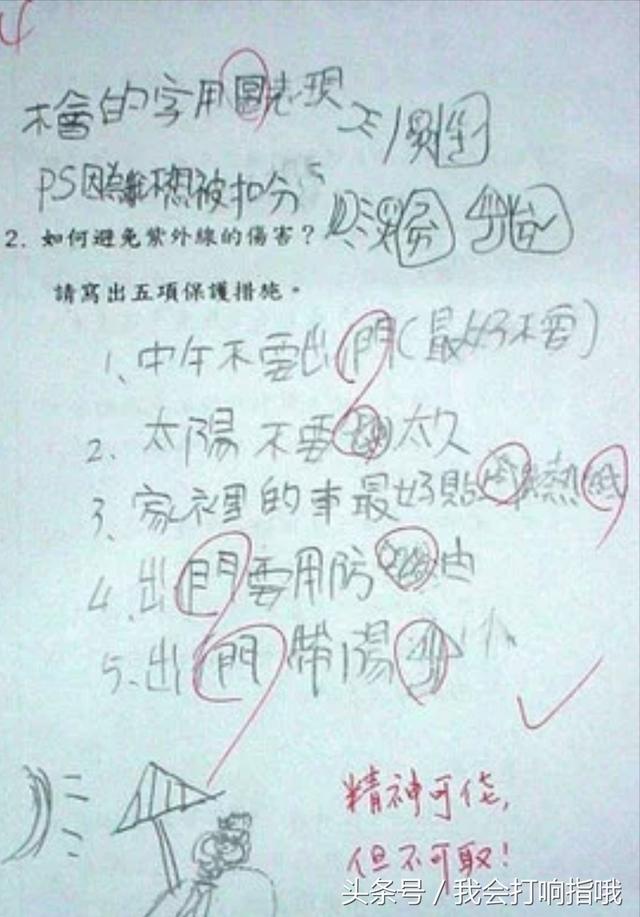 不會的字用圖表現
PS因為我不想被扣分
2. 如何避免紫外線的傷害？
請寫出五項保護措施。
1、中午不要出門(最好不要)
2、太陽不要 太久
3、家裡的車最好貼 熱紙
4、出門要用防 油
5、出門帶陽
精神可佳，
但不可取！
头条号／我会打响指哦